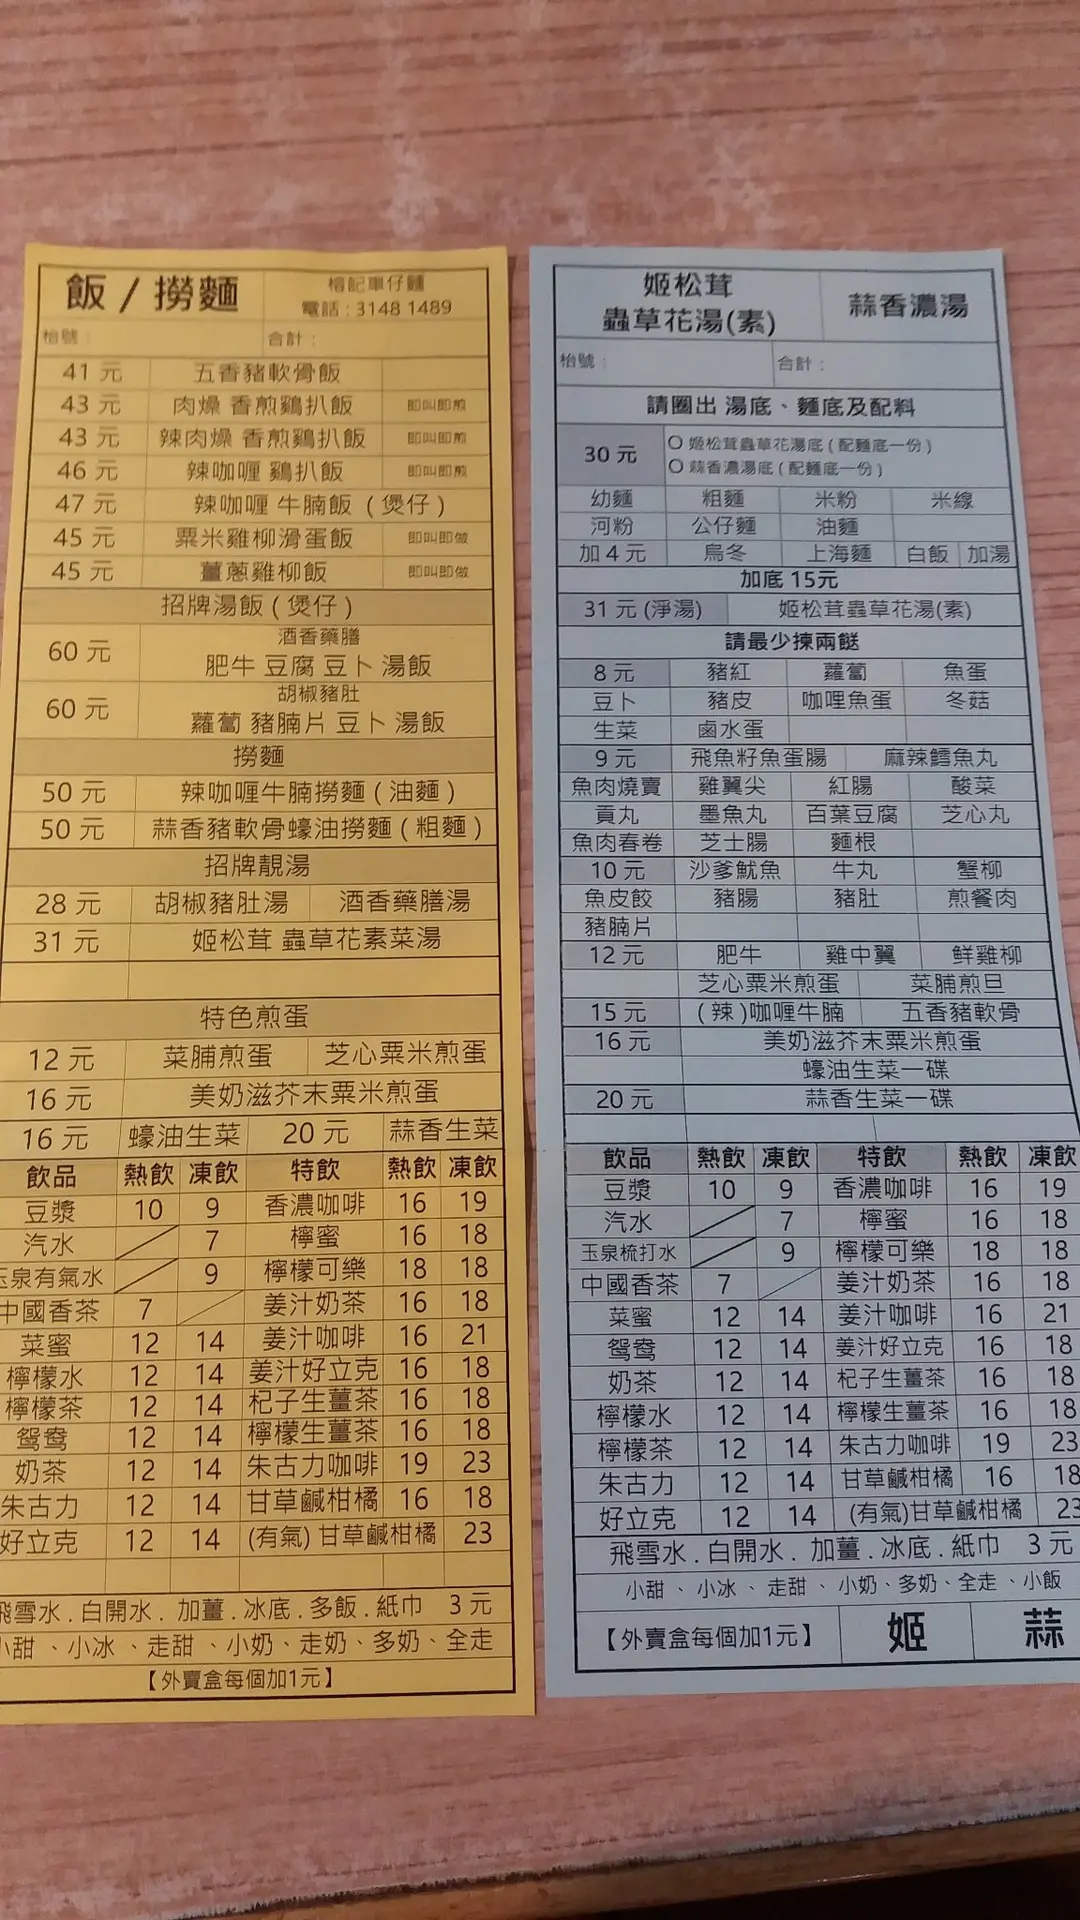 飯 / 撈麵
榕記車仔麵
電話 : 3148 1489
枱號 :
合計 :
41 元 五香豬軟骨飯
43 元 肉燥 香煎鷄扒飯 即叫即煎
43 元 辣肉燥 香煎鷄扒飯 即叫即煎
46 元 辣咖喱 鷄扒飯 即叫即煎
47 元 辣咖喱 牛腩飯 ( 煲仔 )
45 元 粟米雞柳滑蛋飯 即叫即做
45 元 薑蔥雞柳飯 即叫即做
招牌湯飯 ( 煲仔 )
60 元 酒香藥膳
肥牛 豆腐 豆卜 湯飯
60 元 胡椒豬肚
蘿蔔 豬腩片 豆卜 湯飯
撈麵
50 元 辣咖喱牛腩撈麵 ( 油麵 )
50 元 蒜香豬軟骨蠔油撈麵 ( 粗麵 )
招牌靚湯
28 元 胡椒豬肚湯 酒香藥膳湯
31 元 姬松茸 蟲草花素菜湯
特色煎蛋
12 元 菜脯煎蛋 芝心粟米煎蛋
16 元 美奶滋芥末粟米煎蛋
16 元 蠔油生菜 20 元 蒜香生菜
飲品 熱飲 凍飲 特飲 熱飲 凍飲
豆漿 10 9 香濃咖啡 16 19
汽水 7 檸蜜 16 18
玉泉有氣水 9 檸檬可樂 18 18
中國香茶 7 姜汁奶茶 16 18
菜蜜 12 14 姜汁咖啡 16 21
檸檬水 12 14 姜汁好立克 16 18
檸檬茶 12 14 杞子生薑茶 16 18
鴛鴦 12 14 檸檬生薑茶 16 18
奶茶 12 14 朱古力咖啡 19 23
朱古力 12 14 甘草鹹柑橘 16 18
好立克 12 14 (有氣) 甘草鹹柑橘 23
飛雪水 . 白開水 . 加薑 . 冰底 . 多飯 . 紙巾 3 元
小甜 、小冰 、走甜 、小奶、走奶、多奶、全走
【外賣盒每個加1元】
姬松茸
蟲草花湯(素)
蒜香濃湯
枱號 :
合計 :
請圈出 湯底、麵底及配料
30 元 姬松茸蟲草花湯底 ( 配麵底一份 )
蒜香濃湯底 ( 配麵底一份 )
幼麵 粗麵 米粉 米線
河粉 公仔麵 油麵
加 4 元 烏冬 上海麵 白飯 加湯
加底 15元
31 元 (淨湯) 姬松茸蟲草花湯(素)
請最少揀兩餸
8 元 豬紅 蘿蔔 魚蛋
豆卜 豬皮 咖哩魚蛋 冬菇
生菜 鹵水蛋
9 元 飛魚籽魚蛋腸 麻辣鱈魚丸
魚肉燒賣 雞翼尖 紅腸 酸菜
貢丸 墨魚丸 百葉豆腐 芝心丸
魚肉春卷 芝士腸 麵根
10 元 沙爹魷魚 牛丸 蟹柳
魚皮餃 豬腸 豬肚 煎餐肉
豬腩片
12 元 肥牛 雞中翼 鮮雞柳
芝心粟米煎蛋 菜脯煎旦
15 元 ( 辣 )咖喱牛腩 五香豬軟骨
16 元 美奶滋芥末粟米煎蛋
蠔油生菜一碟
20 元 蒜香生菜一碟
飲品 熱飲 凍飲 特飲 熱飲 凍飲
豆漿 10 9 香濃咖啡 16 19
汽水 7 檸蜜 16 18
玉泉梳打水 9 檸檬可樂 18 18
中國香茶 7 姜汁奶茶 16 18
菜蜜 12 14 姜汁咖啡 16 21
鴛鴦 12 14 姜汁好立克 16 18
奶茶 12 14 杞子生薑茶 16 18
檸檬水 12 14 檸檬生薑茶 16 18
檸檬茶 12 14 朱古力咖啡 19 23
朱古力 12 14 甘草鹹柑橘 16 18
好立克 12 14 (有氣)甘草鹹柑橘 23
飛雪水 . 白開水 . 加薑 . 冰底 . 紙巾 3 元
小甜 、 小冰 、 走甜 、 小奶、多奶、全走 、小飯
【外賣盒每個加1元】 姬 蒜